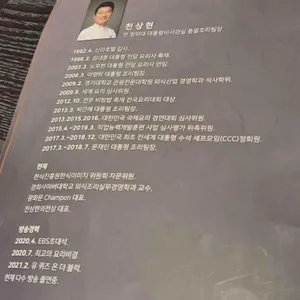 천상현
전 청와대 대통령비서관실 총괄조리팀장
1992.4. 신라호텔 입사.
1998.3. 김대중 대통령 전담 요리사 특채.
2003.3. 노무현 대통령 전담 요리사 연임.
2008.3. 이명박 대통령 조리팀장.
2009.2. 경기대학교 관광전문대학원 외식산업 경영학과 석사학위.
2009.9. 세계 요리 심사위원.
2012.10. 전주 비빔밥 축제 전국요리대회 대상.
2013.3. 박근혜 대통령 조리팀장.
2013.2015.2016. 대한민국 국제요리 경연대회 심사위원.
2015.4.~2019.3. 직업능력개발훈련 사업 심사평가 위촉위원.
2017.3.~2018.12. 대한민국 최초 전세계 대통령 수석 셰프모임(CCC)정회원.
2017.3.~2018.7. 문재인 대통령 조리팀장.
현재
한식진흥원한식이미지 위원회 자문위원.
경희사이버대학교 외식조리실무경영학과 교수.
광화문 Champon 대표.
천상현의천상 대표.
방송경력
2020.4. EBS초대석.
2020.7. 최고의 요리비결.
2021.2. 유 퀴즈 온 더 블럭.
현재 다수 방송 출연중.